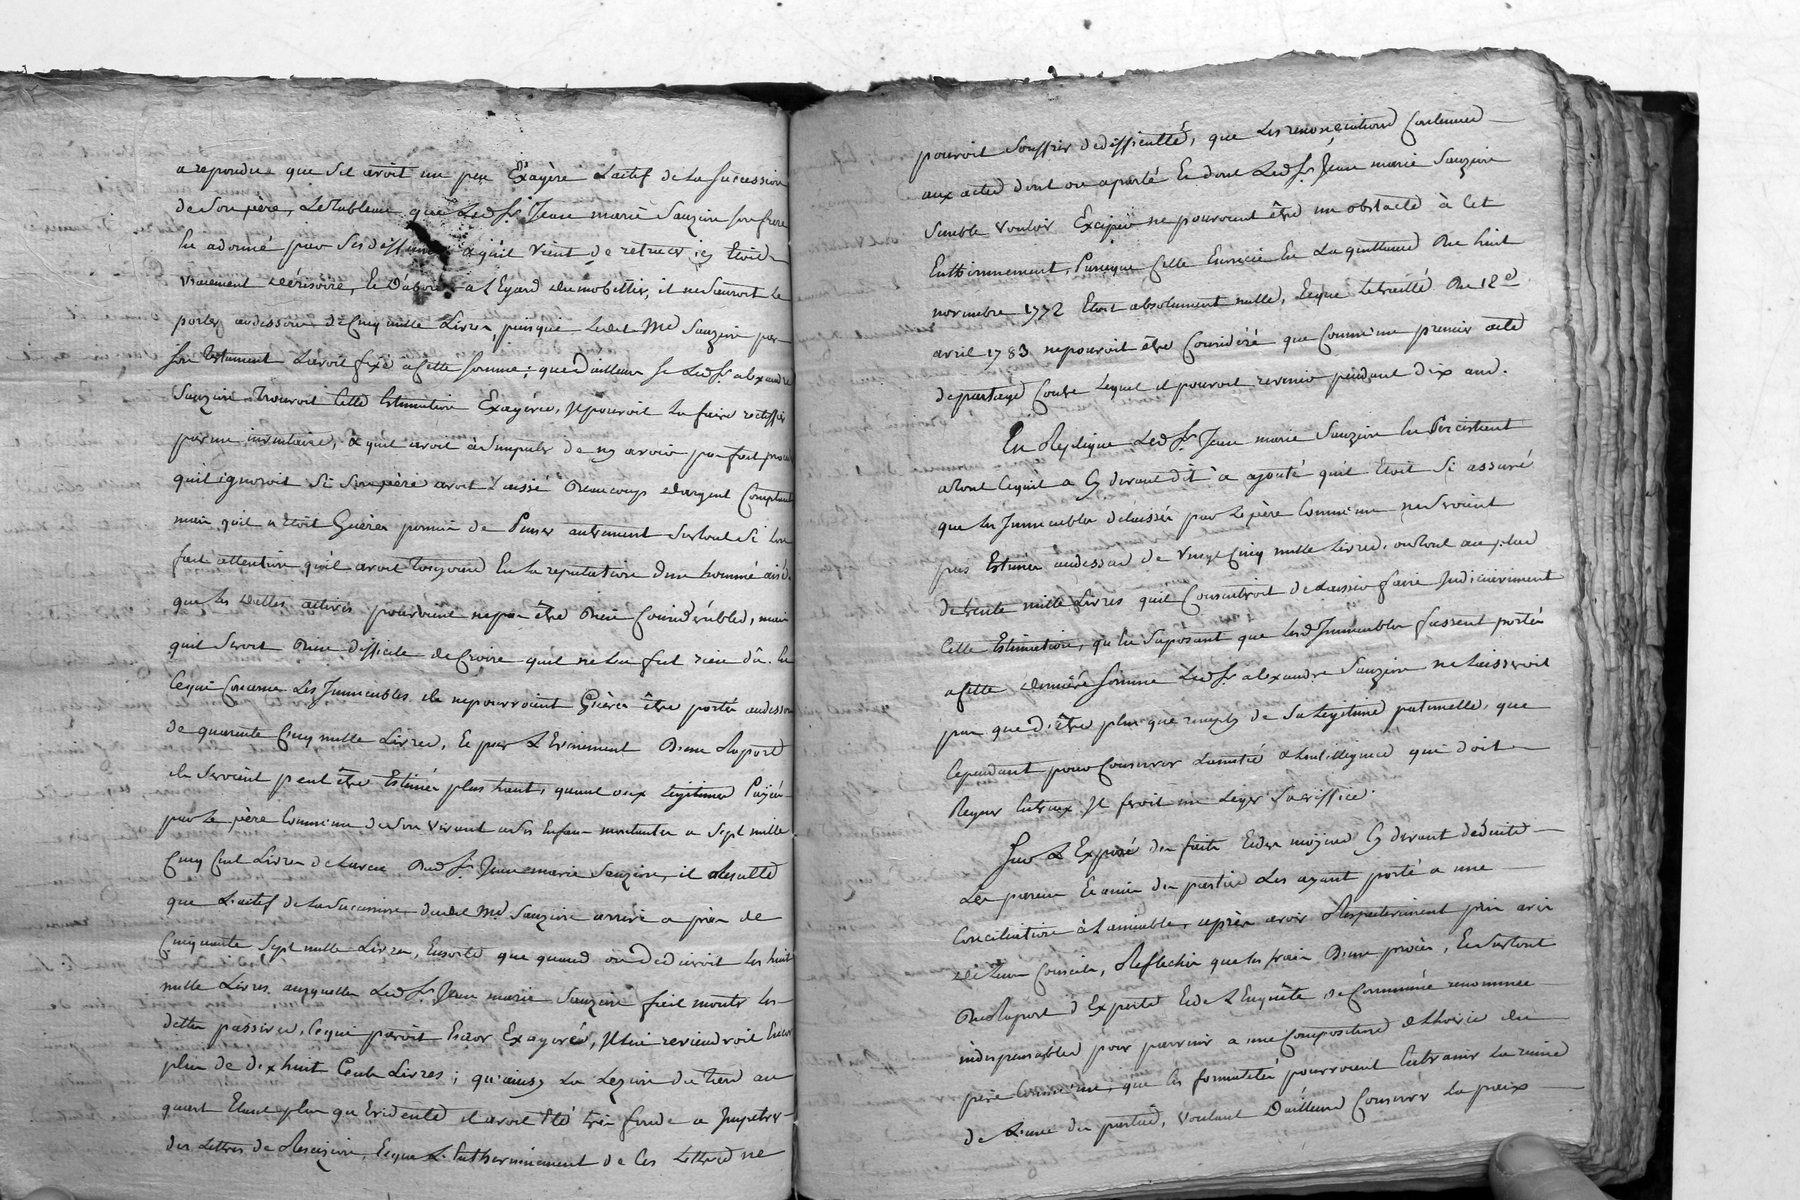 a repondu que s'il avoit un peu Exagéré L'actif de La Succession
de Son père, Le tableau que Led Sr. Jean marie Sauzion Son frere
En a donné par Ses deffenses & qu'il vient de retracer icy Etoit
vraiement derisoire, Et D'abord a L'Egard du mobillier, il ne Sauroit Le
porter audessous de Cinq mille Livres, puisque Ledit Me Sauzion par
Son testament L'avoit fixé a Cette Somme; que D'ailleurs Si Led Sr. alexandre
Sauzion Trouvoit Cette Estimation Exagérée, Il pouvoit La faire rectiffier
par un inventaire, & qu'il avoit à S'imputer de n'y avoir pas fait proceder
quil ignoroit Si Son père avoit Laissé Beaucoup d'argent Comptant
mais quil n'Etoit Guères permis de Penser autrement Surtout Si L'on
fait attention quil avoit toujours Eu La reputation d'un homme aisé.
que Les dettes actives pourroient ne pas être Bien Considerables, mais
quil Seroit Bien difficile de Croire quil ne Lui fut rien dû. En
Ce qui Concerne Les Immeubles ils ne pourroient Guères être portés audessous
de quarente Cinq mille Livres, Et par L'Evenement D'un Raport
ils Seroient peut être Estimés plus haut, quant aux Legitimes Payées
par Le père Commun de Son vivant a Ses Enfans montantes a Sept mille
Cinq Cent Livres de L'aveu Dud Sr. Jean marie Sauzion, il Resulte
que L'actif de La Succession dudit Me Sauzion arrive a près de
Cinquante Sept mille Livres, Ensorte que quand on Deduiroit Les huit
mille Livres auxquelles Led Sr. Jean marie Sauzion fait monter Les
dettes passives, Ce qui paroit Encor Exageré, Il Lui reviendroit Encor
plus de dix huit Cents Livres; qu'ainsy La Lezion du tiers au
quart Etant plus qu'Evidente il avoit Eté très fondé a Impetrer
des Lettres de Rescizion, Et que L'Entherinement de Ces Lettres ne
pouvoit Souffrir de difficulté, que Les renonciations Contenues
aux actes dont on a parlé Et dont Led Sr. Jean marie Sauzion
Semble vouloir Exciper ne pouvoient être un obstacle à Cet
Entherinnement, Puisque Celle Enoncée En La quittance Du huit
novembre 1772 Etoit absolument nulle, Et que Le traitté Du 12e
avril 1783 ne pouvoit être Consideré que Comme un premier acte
de partage Contre Lequel il pouvoit revenir pendant dix ans.
En Replique Led Sr. Jean marie Sauzion En Persistant
a tout Ce quil a Cy devant dit a ajouté quil Etoit Si assuré
que Les Immeubles delaissés par Le père Commun ne Seroient
pas Estimés audessus de vingt Cinq mille Livres, ou tout au plus
de trente mille Livres quil Consentiroit de Laisser faire Judiciairement
Cette Estimation, qu'En Suposant que Lesd Immeubles fussent portés
a Cette derniere Somme Led Sr. alexandre Sauzion ne Laisseroit
pas que D'être plus que remply de Sa Legitime paternelle, que
Cependant pour Conserver L'amitié & L'intelligence qui doit
Regner Entreux Il feroit un Leger Sacriffice.
Sur L'Exposé des faits Et des moÿens Cy devant déduits
Les parens Et amis des parties Les ayant porté a une
Conciliation à L'amiable, après avoir Respectivement pris avis
de Leurs Conseils, Reflechis que Les frais D'un procès, Et Surtout
Du Raport d'Experts Et de L'Enquête de Commune renommée
indispensables pour parvenir a une Composition d'hoirie du
père Commun, que Ces formalités pourroient Entrainer La ruine
de L'une des parties, voulant D'ailleurs Conserver La paix